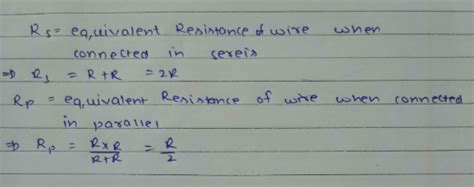 Rs = eq,uivalent Resinstance of wire when
connected in sereis
⇒ Rs = R+R = 2R
Rp = eq,uivalent Resinstance of wire when connected
in parallel
⇒ Rp = R×R/R+R = R/2